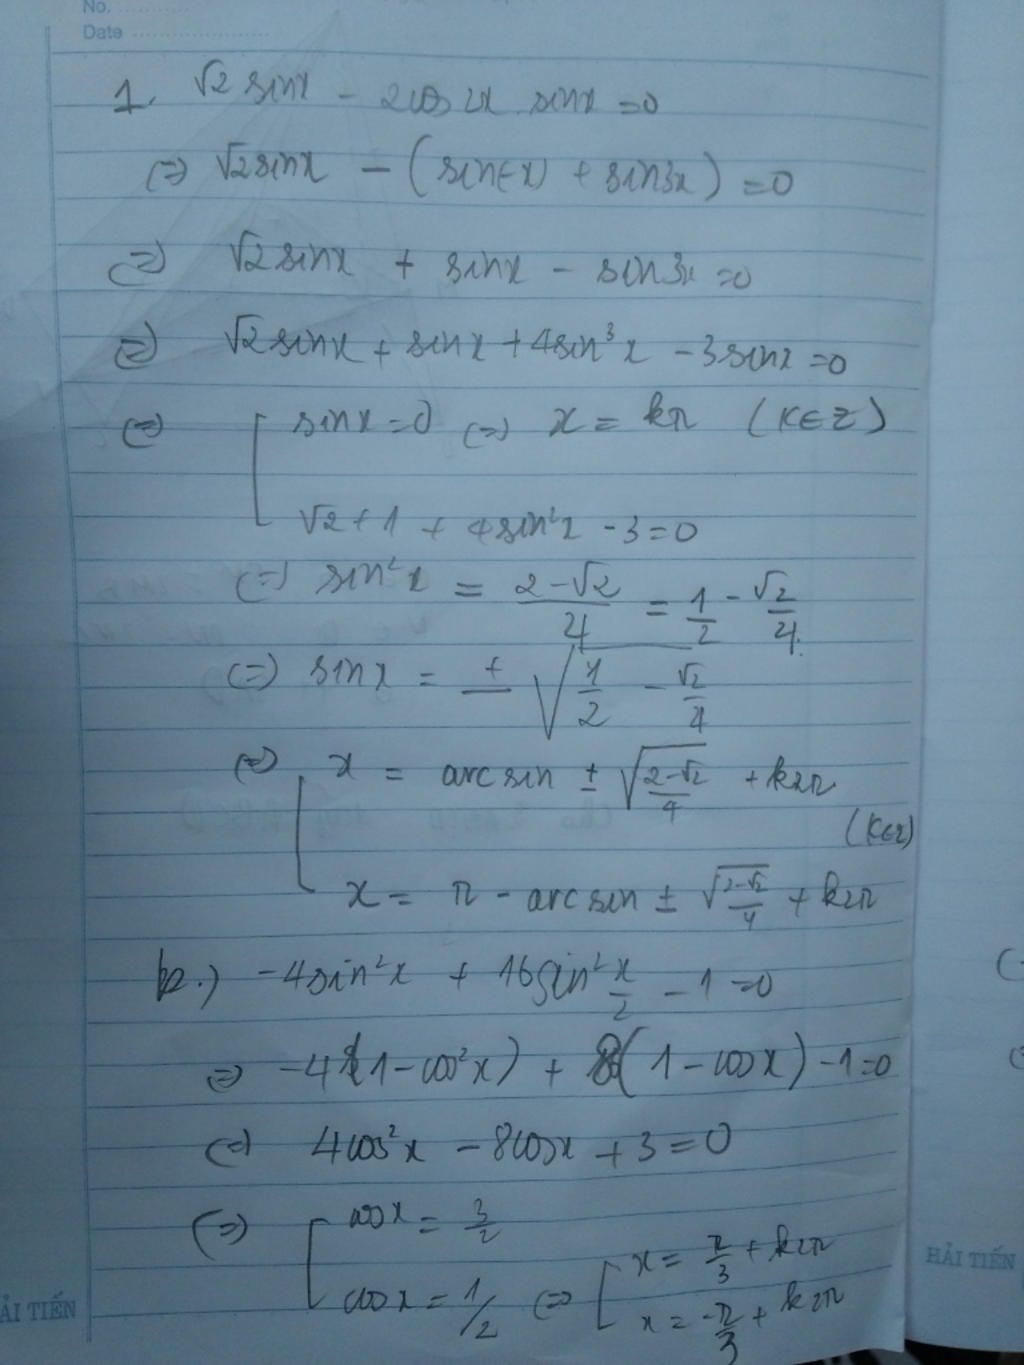 No. ....................
Date .......................
1. √2 sinx - 2cos2x sinx = 0
(=) √2 sinx - (sin(-x) + sin3x) = 0
(=) √2 sinx + sinx - sin3x = 0
(=) √2 sinx + sinx + 4sin³x - 3sinx = 0
(=) [ sinx = 0 (=) x = kπ (k∈Z)
√2 + 1 + 4sin²x - 3 = 0
(=) sin²x = (2-√2)/4 = 1/2 - √2/4.
(=) sinx = ± √(1/2 - √2/4)
(=) [ x = arcsin ± √((2-√2)/4) + k2π
(k∈Z)
x = π - arcsin ± √((2-√2)/4) + k2π
2.) -4sin²x + 16sin² x/2 - 1 = 0
(=) -4(1-cos²x) + 8(1-cosx) - 1 = 0
(=) 4cos²x - 8cosx + 3 = 0
(=) [ cosx = 3/2
cosx = 1/2 (=) [ x = π/3 + k2π
x = -π/3 + k2π
HẢI TIẾN
ẢI TIẾN